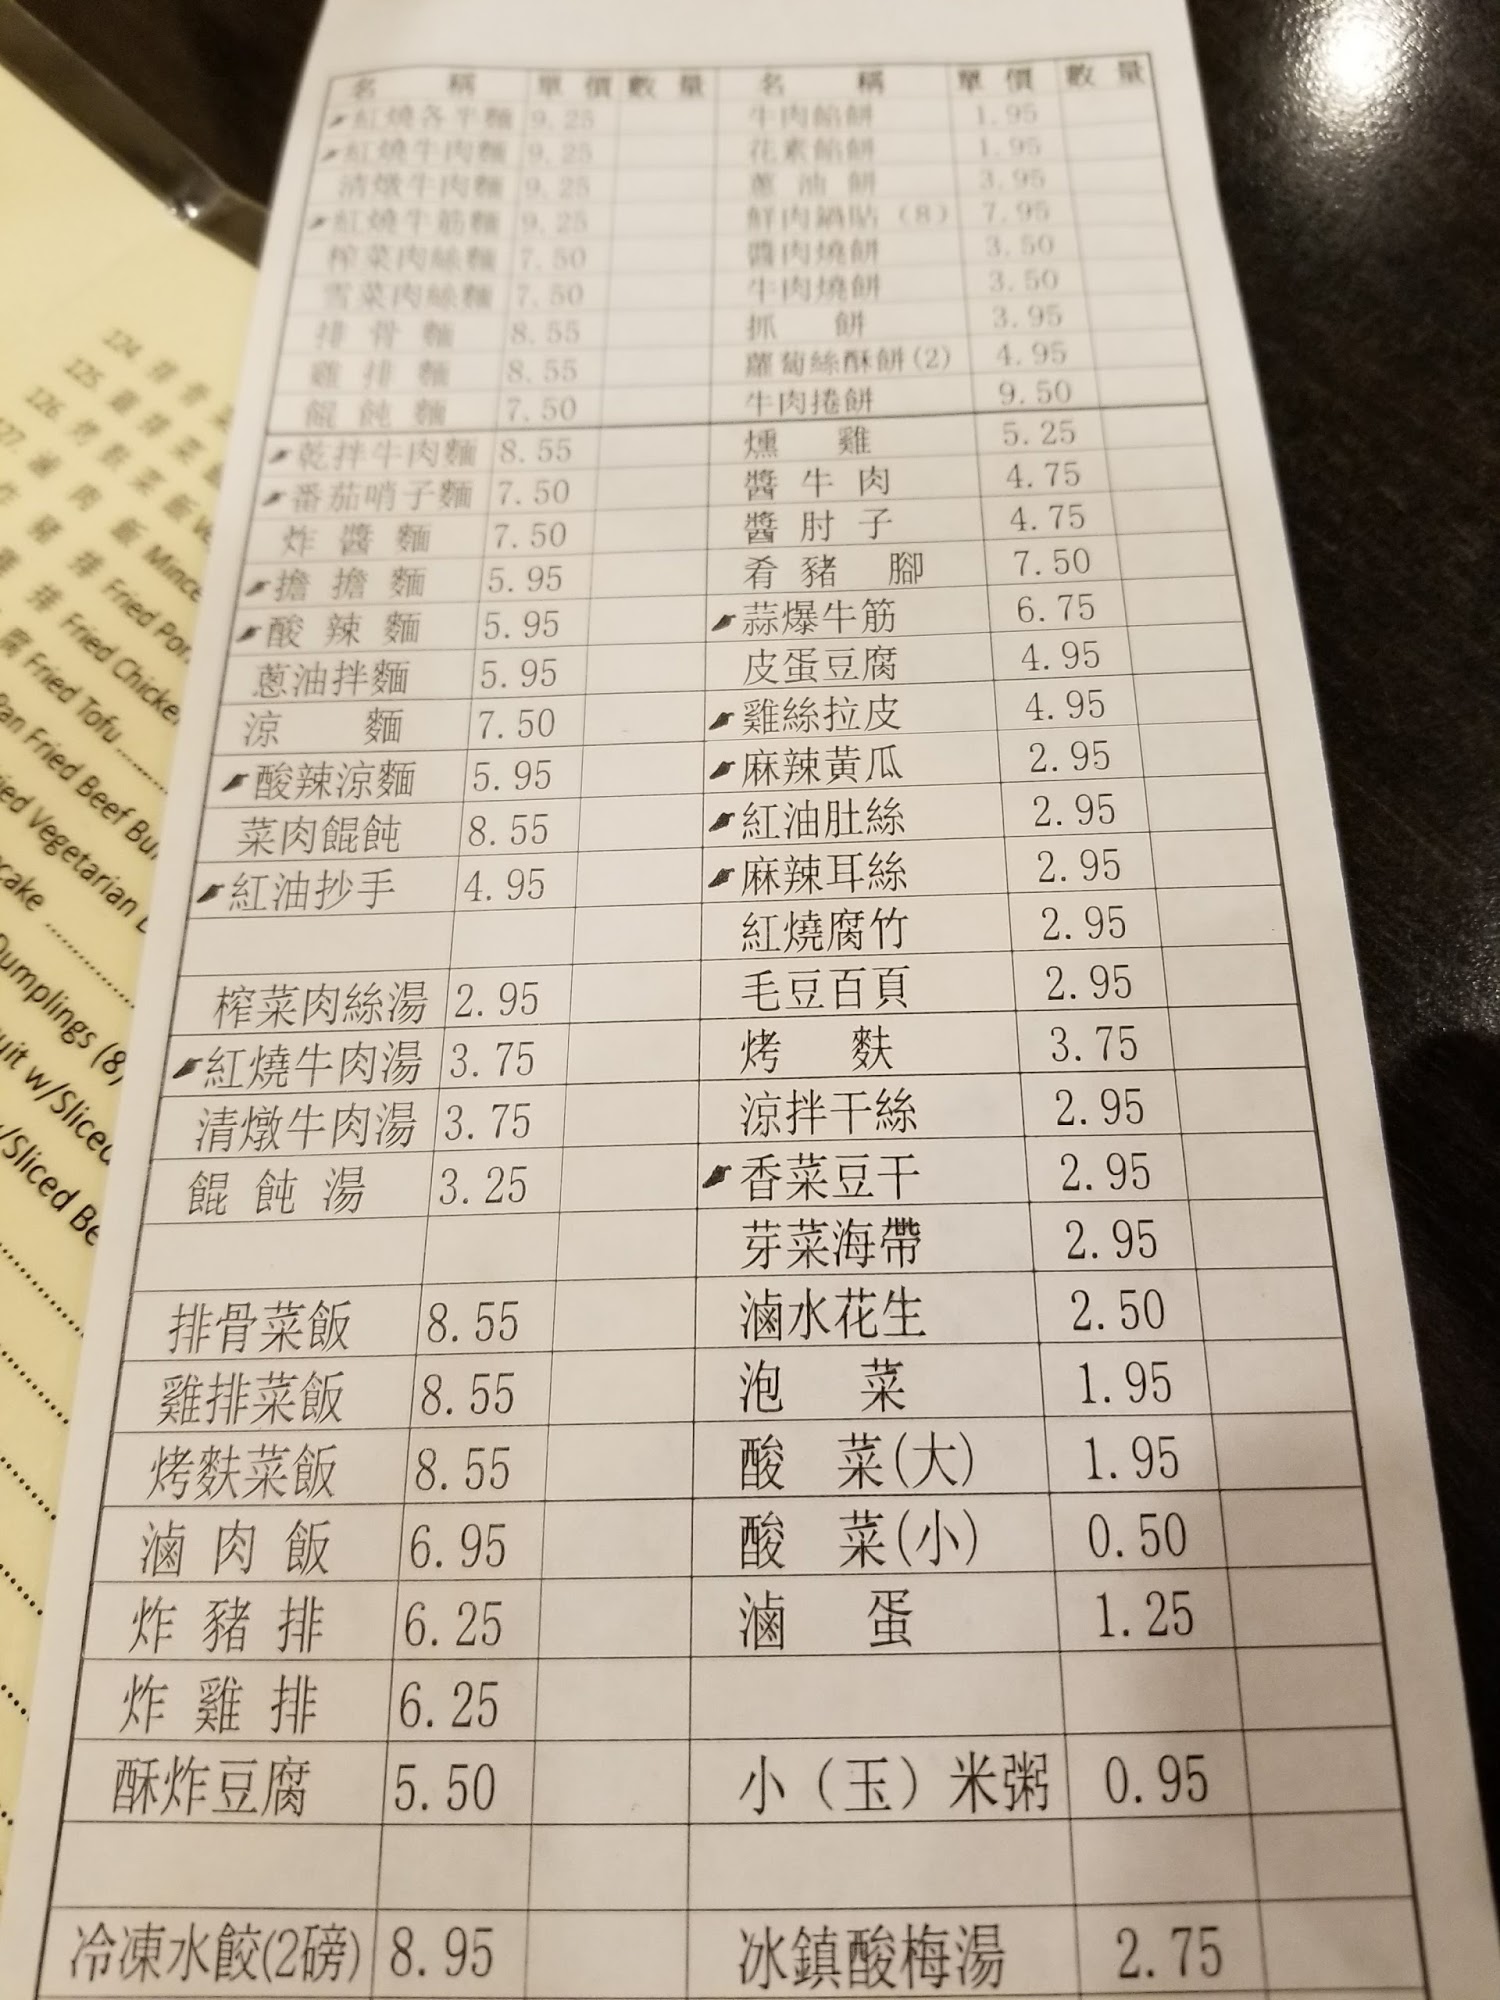 名 稱 單 價 數 量 名 稱 單 價 數 量
紅燒各半麵 9.25 牛肉餡餅 1.95
紅燒牛肉麵 9.25 花素餡餅 1.95
清燉牛肉麵 9.25 蔥油餅 3.95
紅燒牛筋麵 9.25 鮮肉鍋貼(8) 7.95
榨菜肉絲麵 7.50 醬肉燒餅 3.50
雪菜肉絲麵 7.50 牛肉燒餅 3.50
排骨麵 8.55 抓餅 3.95
雞排麵 8.55 蘿蔔絲酥餅(2) 4.95
餛飩麵 7.50 牛肉捲餅 9.50
乾拌牛肉麵 8.55 燻雞 5.25
番茄哨子麵 7.50 醬牛肉 4.75
炸醬麵 7.50 醬肘子 4.75
擔擔麵 5.95 肴豬腳 7.50
酸辣麵 5.95 蒜爆牛筋 6.75
蔥油拌麵 5.95 皮蛋豆腐 4.95
涼麵 7.50 雞絲拉皮 4.95
酸辣涼麵 5.95 麻辣黃瓜 2.95
菜肉餛飩 8.55 紅油肚絲 2.95
紅油抄手 4.95 麻辣耳絲 2.95
紅燒腐竹 2.95
榨菜肉絲湯 2.95 毛豆百頁 2.95
紅燒牛肉湯 3.75 烤麩 3.75
清燉牛肉湯 3.75 涼拌干絲 2.95
餛飩湯 3.25 香菜豆干 2.95
芽菜海帶 2.95
排骨菜飯 8.55 滷水花生 2.50
雞排菜飯 8.55 泡菜 1.95
烤麩菜飯 8.55 酸菜(大) 1.95
滷肉飯 6.95 酸菜(小) 0.50
炸豬排 6.25 滷蛋 1.25
炸雞排 6.25
酥炸豆腐 5.50 小(玉)米粥 0.95
冷凍水餃(2磅) 8.95 冰鎮酸梅湯 2.75
124 排骨菜
125 雞排菜
126. 烤麩菜飯
127. 滷肉飯 Mince
豬排 Fried Por
排 Fried Chicke
腐 Fried Tofu
Pan Fried Beef Bu
Vegetarian
cake
Dumplings (8)
w/Sliced
w/Sliced Be